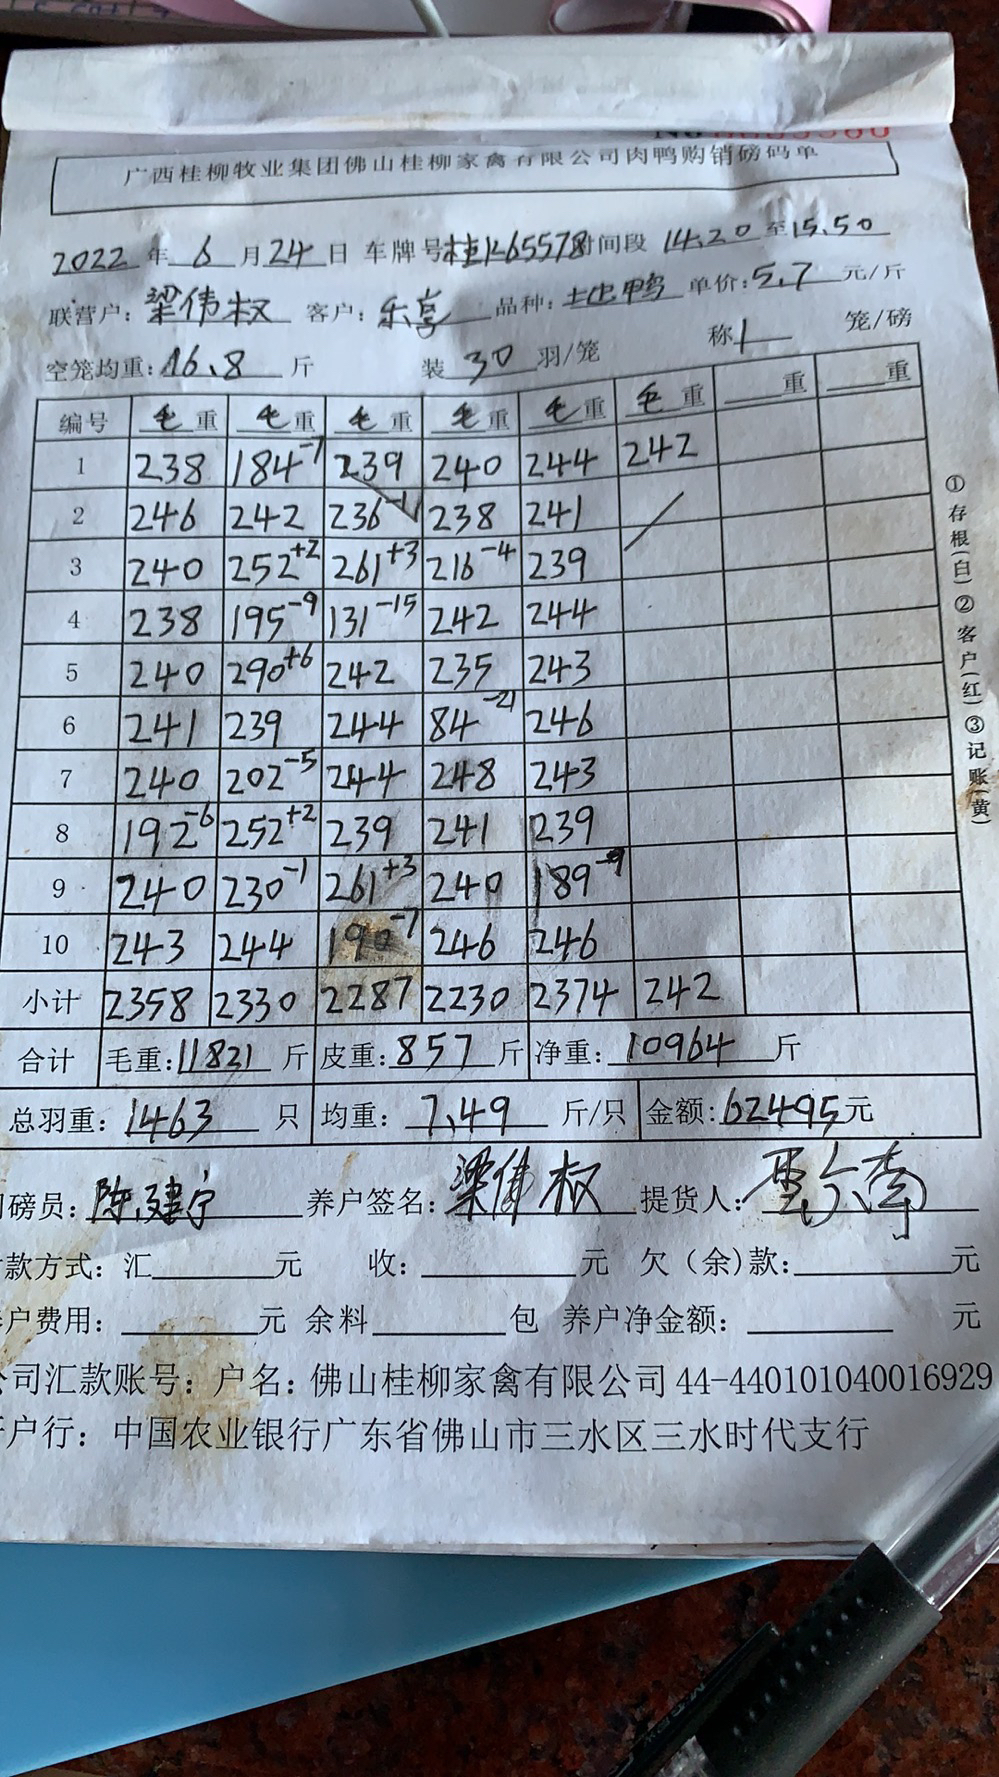 广西桂柳牧业集团佛山桂柳家禽有限公司肉鸭购销磅码单
2022年6月24日 车牌号桂K65578时间段 14.20至15.50
联营户:梁伟权 客户:乐享 品种:土北鸭 单价:5.7元/斤
空笼均重:16.8斤 装30羽/笼 称1笼/磅
编号 毛重 毛重 毛重 毛重 毛重 毛重 重 重
1 238 184-7 239 240 244 242
2 246 242 236-1 238 241
3 240 252+2 261+3 216-4 239
4 238 195-9 131-15 242 244
5 240 290+6 242 235 243
6 241 239 244 84-21 246
7 240 202-5 244 248 243
8 192-6 252+2 239 241 239
9 240 230-1 261+3 240 189-9
10 243 244 190-7 246 246
小计 2358 2330 2287 2230 2374 242
合计 毛重:11821斤 皮重:857斤 净重:10964斤
总羽重:1463只 均重:7.49斤/只 金额:62495元
磅员:陈建宁 养户签名:梁伟权 提货人:
款方式:汇 元 收: 元 欠(余)款: 元
户费用: 元 余料 包 养户净金额: 元
公司汇款账号:户名:佛山桂柳家禽有限公司 44-440101040016929
开户行:中国农业银行广东省佛山市三水区三水时代支行
①存根(白)②客户(红)③记账(黄)